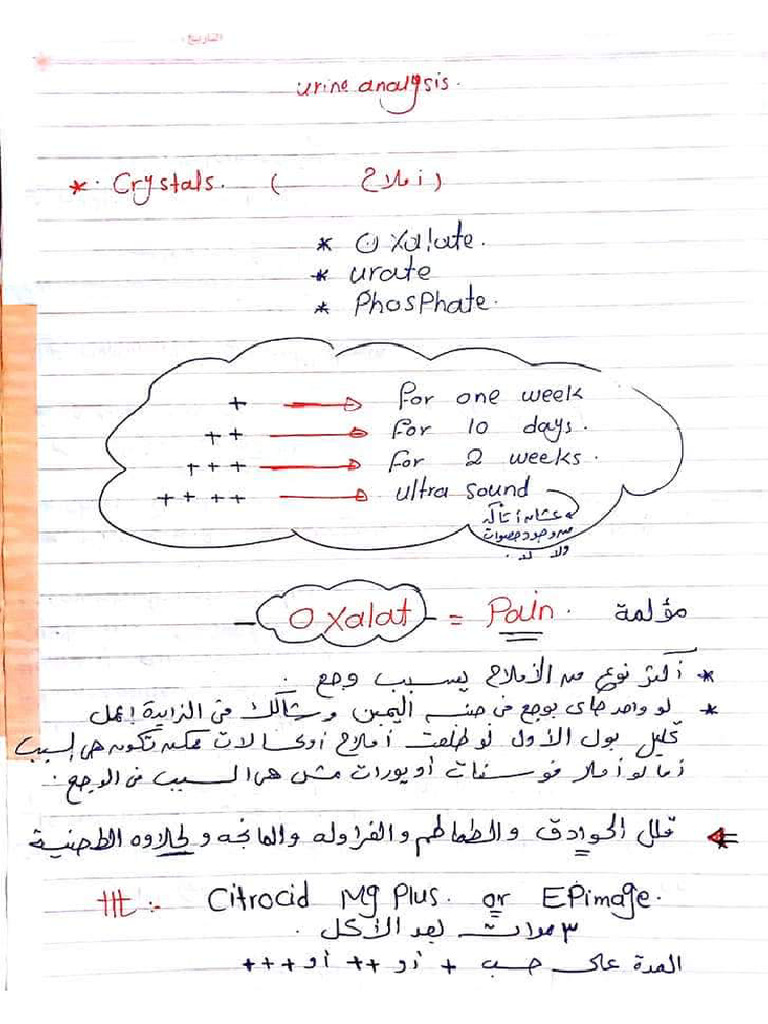 التاريخ :
urine analysis.
* Crystals. ( أملاح )
* Oxalate.
* urate
* Phosphate.
+ → for one week
++ → for 10 days.
+++ → for 2 weeks.
++++ → ultra sound
عشان أتأكد
من وجود حصوات
ولا لا.
Oxalat = Pain. مؤلمة
* أكتر نوع من الأملاح يسبب وجع.
* لو واحد جاى بوجع فى جنبه اليمين وشاكك فى الزايدة إعمل
تحليل بول الأول لو طلعت أملاح أوكسالات ممكن تكون هى السبب
أما لو أملاح فوسفات أو يورات مش هى السبب فى الوجع.
قلل الحوادق والطماطم والفراوله والمانجه والحلاوه الطحنية
ttt :- Citrocid Mg Plus. or EPimage.
٣ مرات بعد الأكل.
المدة على حسب + أو ++ أو +++